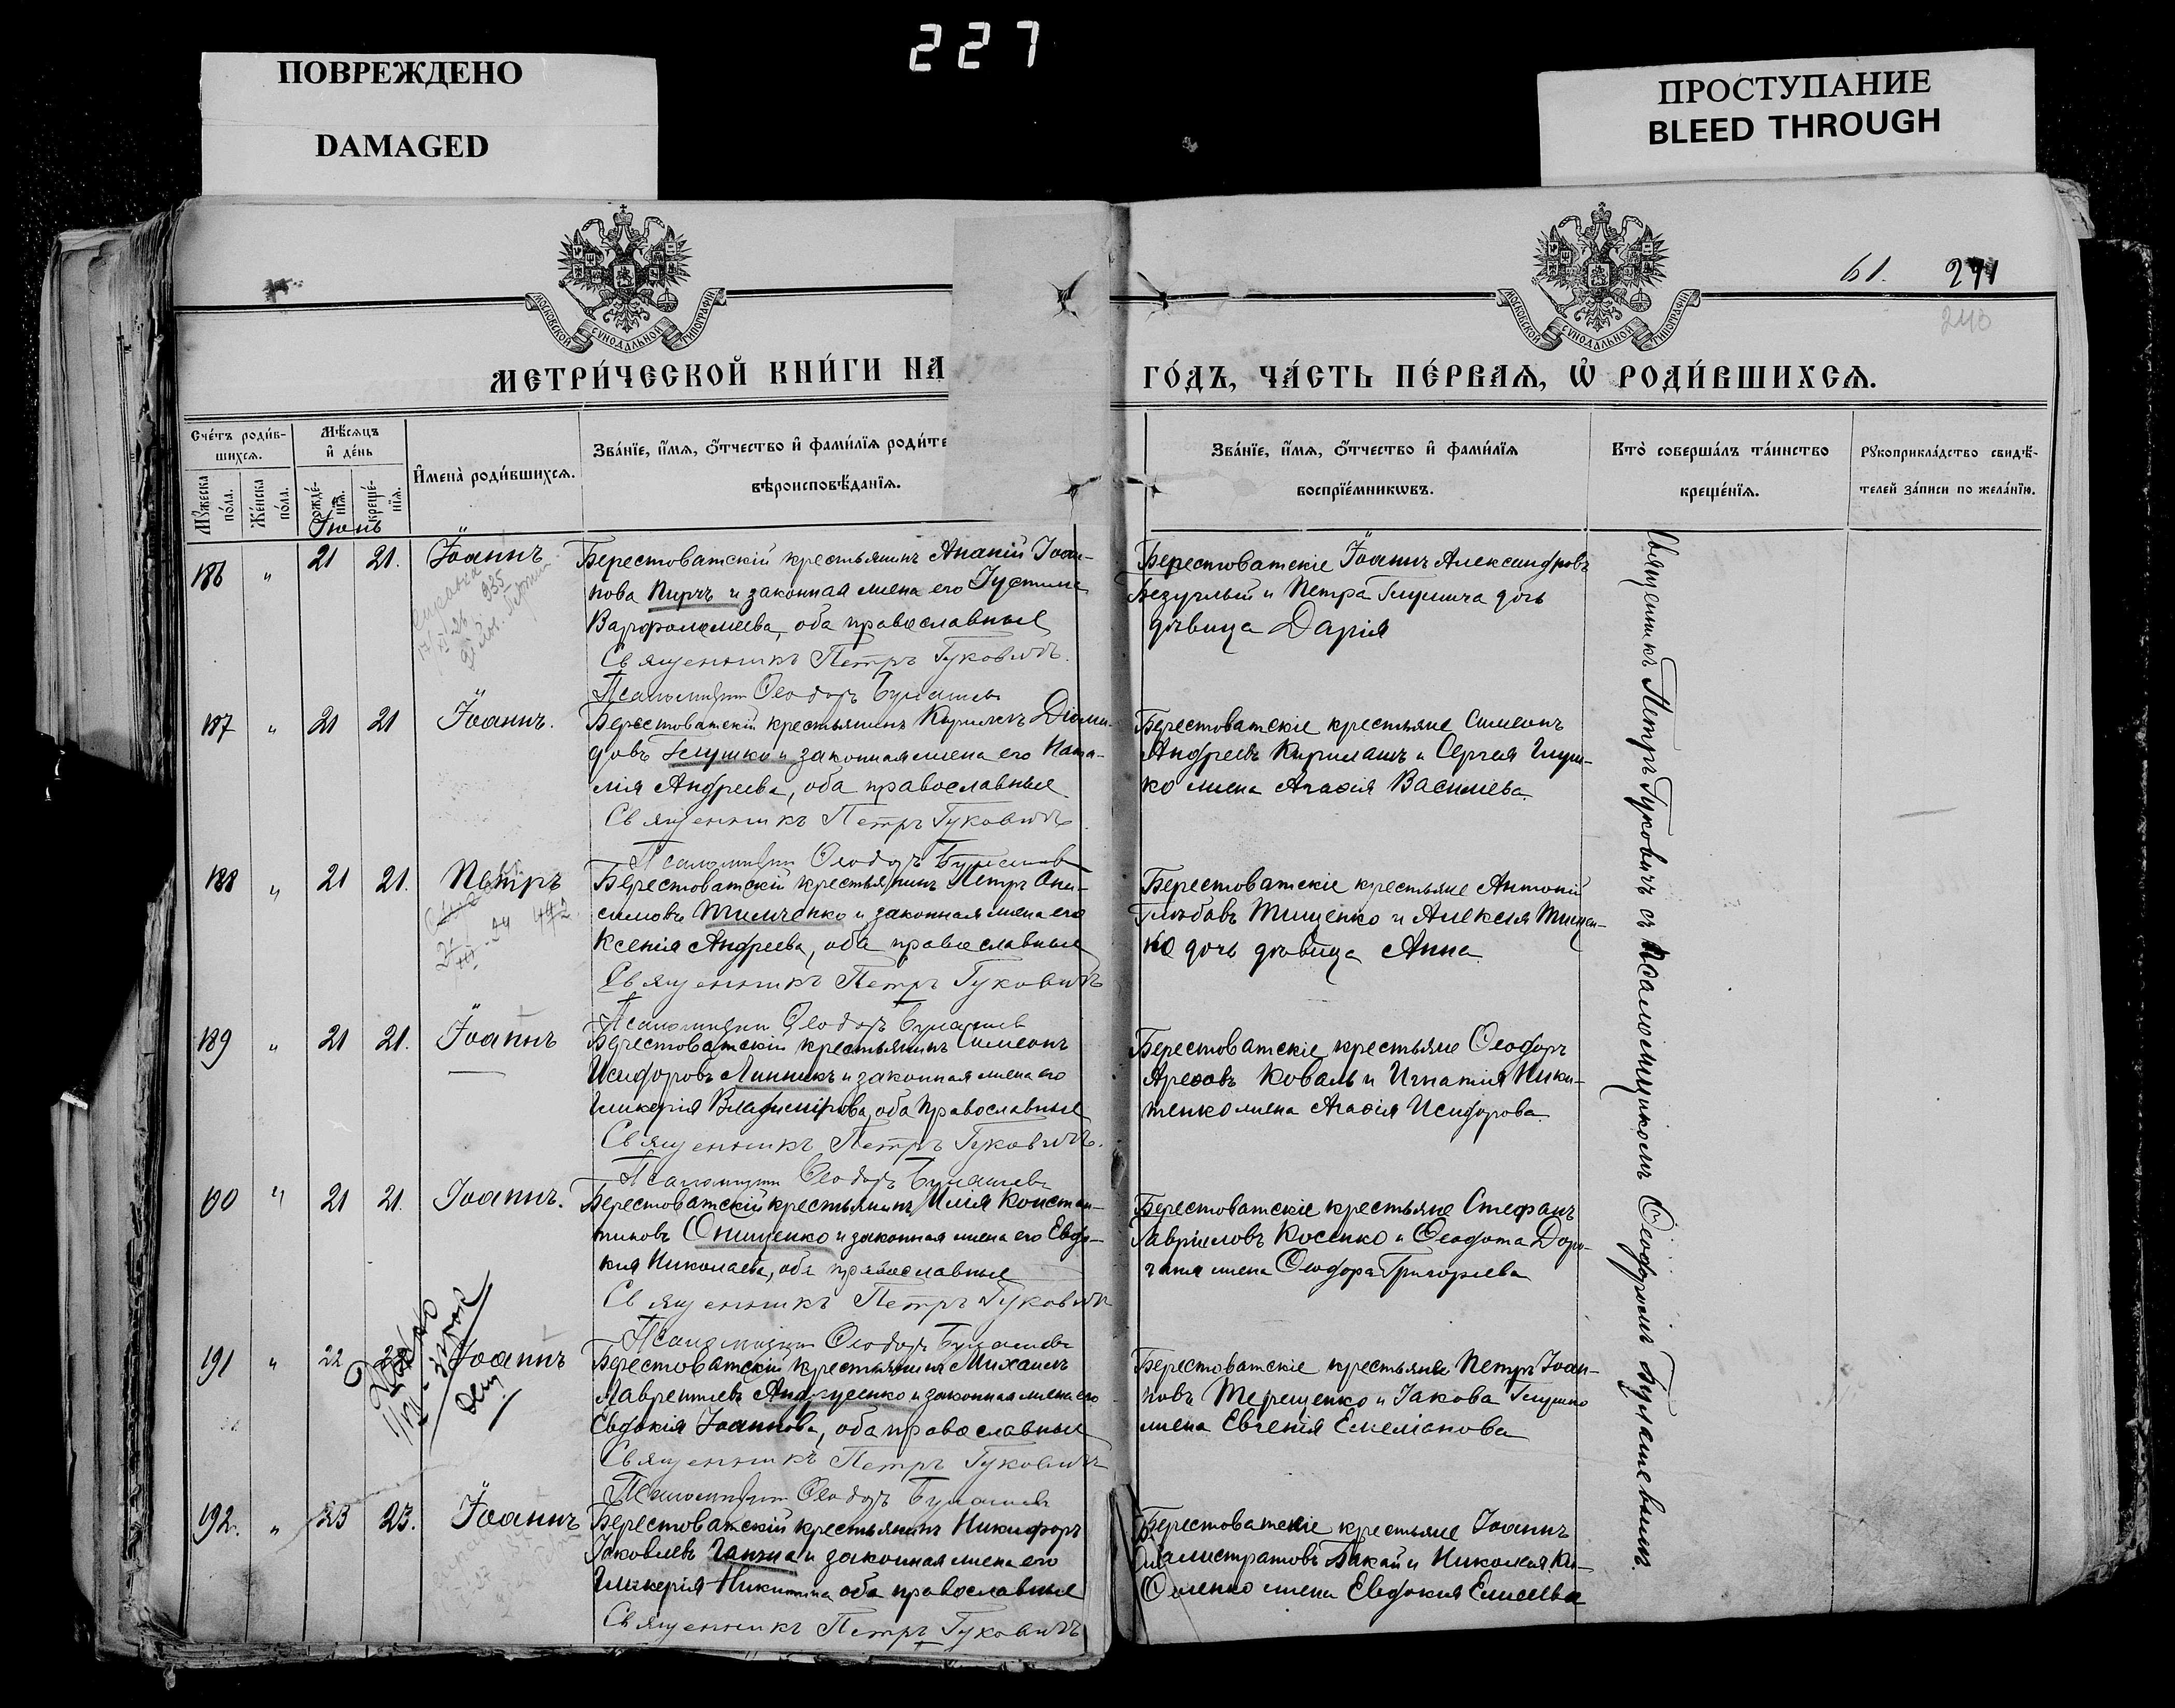 227
ПОВРЕЖДЕНО
DAMAGED
ПРОСТУПАНИЕ
BLEED THROUGH
МОСКОВСКОЙ СѴНОДАЛЬНОЙ ТИПОГРАФІИ
МОСКОВСКОЙ СѴНОДАЛЬНОЙ ТИПОГРАФІИ
61. 271
240
МЕТРИ́ЧЕСКОЙ КНИ́ГИ НА
ГО́ДЪ, ЧА́СТЬ ПЕ́РВАѦ, Ѡ҆ РОДИ́ВШИХСѦ.
Сче́тъ роди́в-
шихсѧ.
Мꙋ́жеска по́ла.
Же́нска по́ла.
Мѣ́сѧцъ
и҆ де́нь
рожде́-
нїѧ.
креще́-
нїѧ.
И҆мена̀ роди́вшихсѧ.
Зва́нїе, и҆́мѧ, ѻ҆́тчество и҆ фами́лїѧ роди́те
вѣроисповѣ́данїѧ.
Зва́нїе, и҆́мѧ, ѻ҆́тчество и҆ фами́лїѧ
воспрїе́мникѡвъ.
Кто̀ соверша́лъ та́инство
креще́нїѧ.
Рꙋкоприкла́дство свидѣ́-
телей за́писи по жела́нїю.
Іюнь
186 " 21 21. Іоаннъ
Берестоватскій крестьянинъ Ананій Іоан-
нова Пирчъ и законная жена его Іустина
Варфоломеева, оба православные
Священникъ Петръ Гуковичъ.
Псаломщикъ Ѳеодоръ Булашевъ
Берестоватскіе Іоаннъ Александровъ
Безуглый и Петра Глушича дочь
дѣвица Дарія
187 " 21 21 Іоаннъ.
Берестоватскій крестьянинъ Кириллъ Діоми-
довъ Глушко и законная жена его Ната-
лія Андреева, оба православные
Священникъ Петръ Гуковичъ.
Псаломщикъ Ѳеодоръ Булашевъ
Берестоватскіе крестьяне Симеонъ
Андреевъ Кирилашъ и Сергія Глуш-
ко жена Агаѳія Васильева.
188 " 21 21. Петръ
Берестоватскій крестьянинъ Петръ Они-
симовъ Тимченко и законная жена его
Ксенія Андреева, оба православные
Священникъ Петръ Гуковичъ
Псаломщикъ Ѳеодоръ Булашевъ
Берестоватскіе крестьяне Антоній
Глѣбовъ Тищенко и Алексія Тищен-
ко дочь дѣвица Анна
189 " 21 21. Іоаннъ
Берестоватскій крестьянинъ Симеонъ
Исидоровъ Линникъ и законная жена его
Гликерія Владимірова, оба православные
Священникъ Петръ Гуковичъ.
Псаломщикъ Ѳеодоръ Булашевъ
Берестоватскіе крестьяне Ѳеодоръ
Ареѳовъ Коваль и Игнатія Ники-
тенко жена Агаѳія Исидорова.
190 " 21 21. Іоаннъ.
Берестоватскій крестьянинъ Илія Констан-
тиновъ Онищенко и законная жена его Евдо-
кія Николаева, оба православные
Священникъ Петръ Гуковичъ
Псаломщикъ Ѳеодоръ Булашевъ
Берестоватскіе крестьяне Стефанъ
Гавріиловъ Косенко и Ѳеодота Доро-
жена Ѳеодора Григорьева
191 " 22 Іоаннъ
Берестоватскій крестьянинъ Михаилъ
Лаврентіевъ Андрусенко и законная жена его
Евдокія Іоаннова, оба православные
Священникъ Петръ Гуковичъ
Псаломщикъ Ѳеодоръ Булашевъ
Берестоватскіе крестьяне Петръ Іоан-
новъ Терещенко и Іакова Глушко
жена Евгенія Емеліанова
192. " 23 23. Іоаннъ
Берестоватскій крестьянинъ Никифоръ
Іаковлевъ Ганжа и законная жена его
Гликерія Никитина оба православные
Священникъ Петръ Гуковичъ
Берестоватскіе крестьяне Іоаннъ
Бакай и Николая
жена Евдокія Елисеева
Священникъ Петръ Гуковичъ съ псаломщикомъ Ѳеодоромъ Булашевымъ.